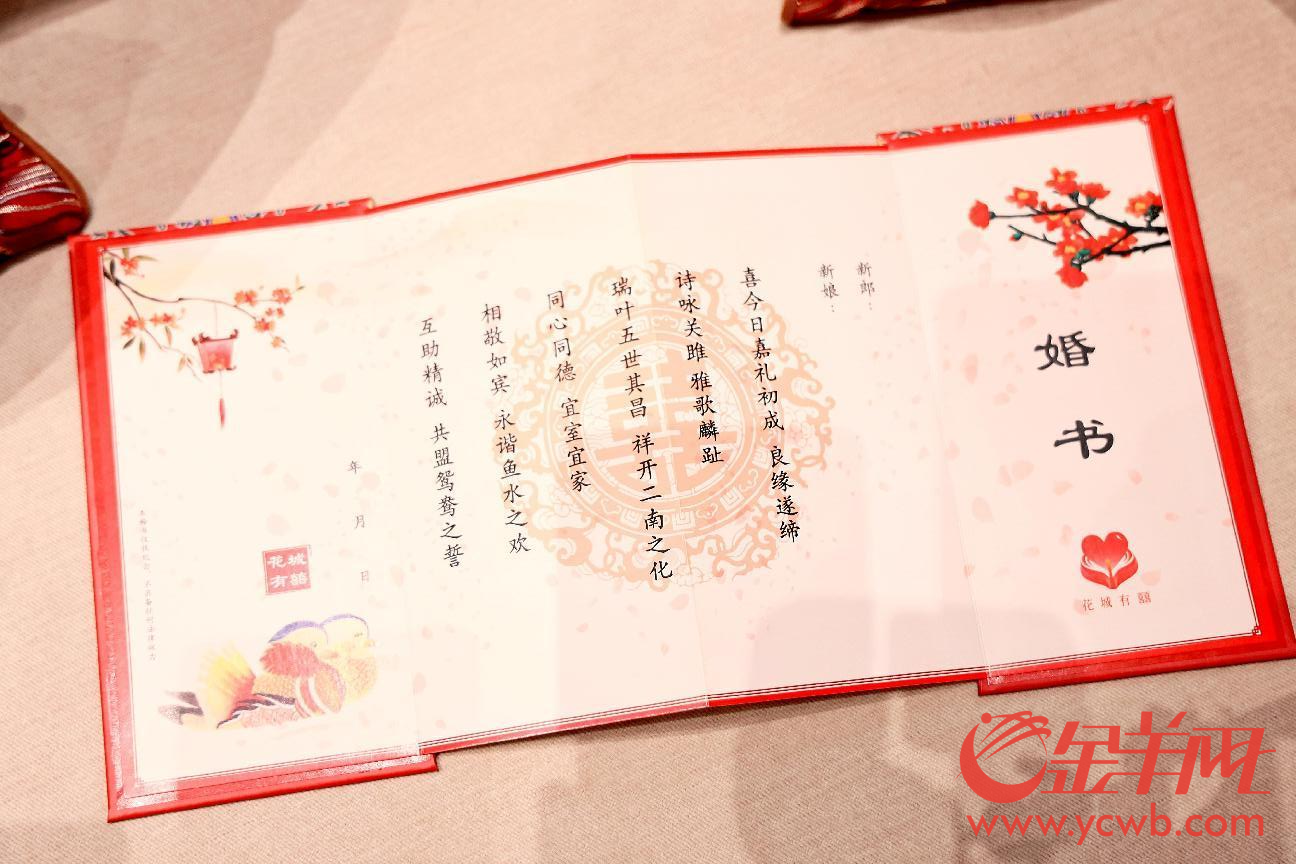 婚书
花城有囍
新郎：
新娘：
喜今日嘉礼初成 良缘遂缔
诗咏关雎 雅歌麟趾
瑞叶五世其昌 祥开二南之化
同心同德 宜室宜家
相敬如宾 永谐鱼水之欢
互助精诚 共盟鸳鸯之誓
年 月 日
花城
有囍
金羊网
www.ycwb.com